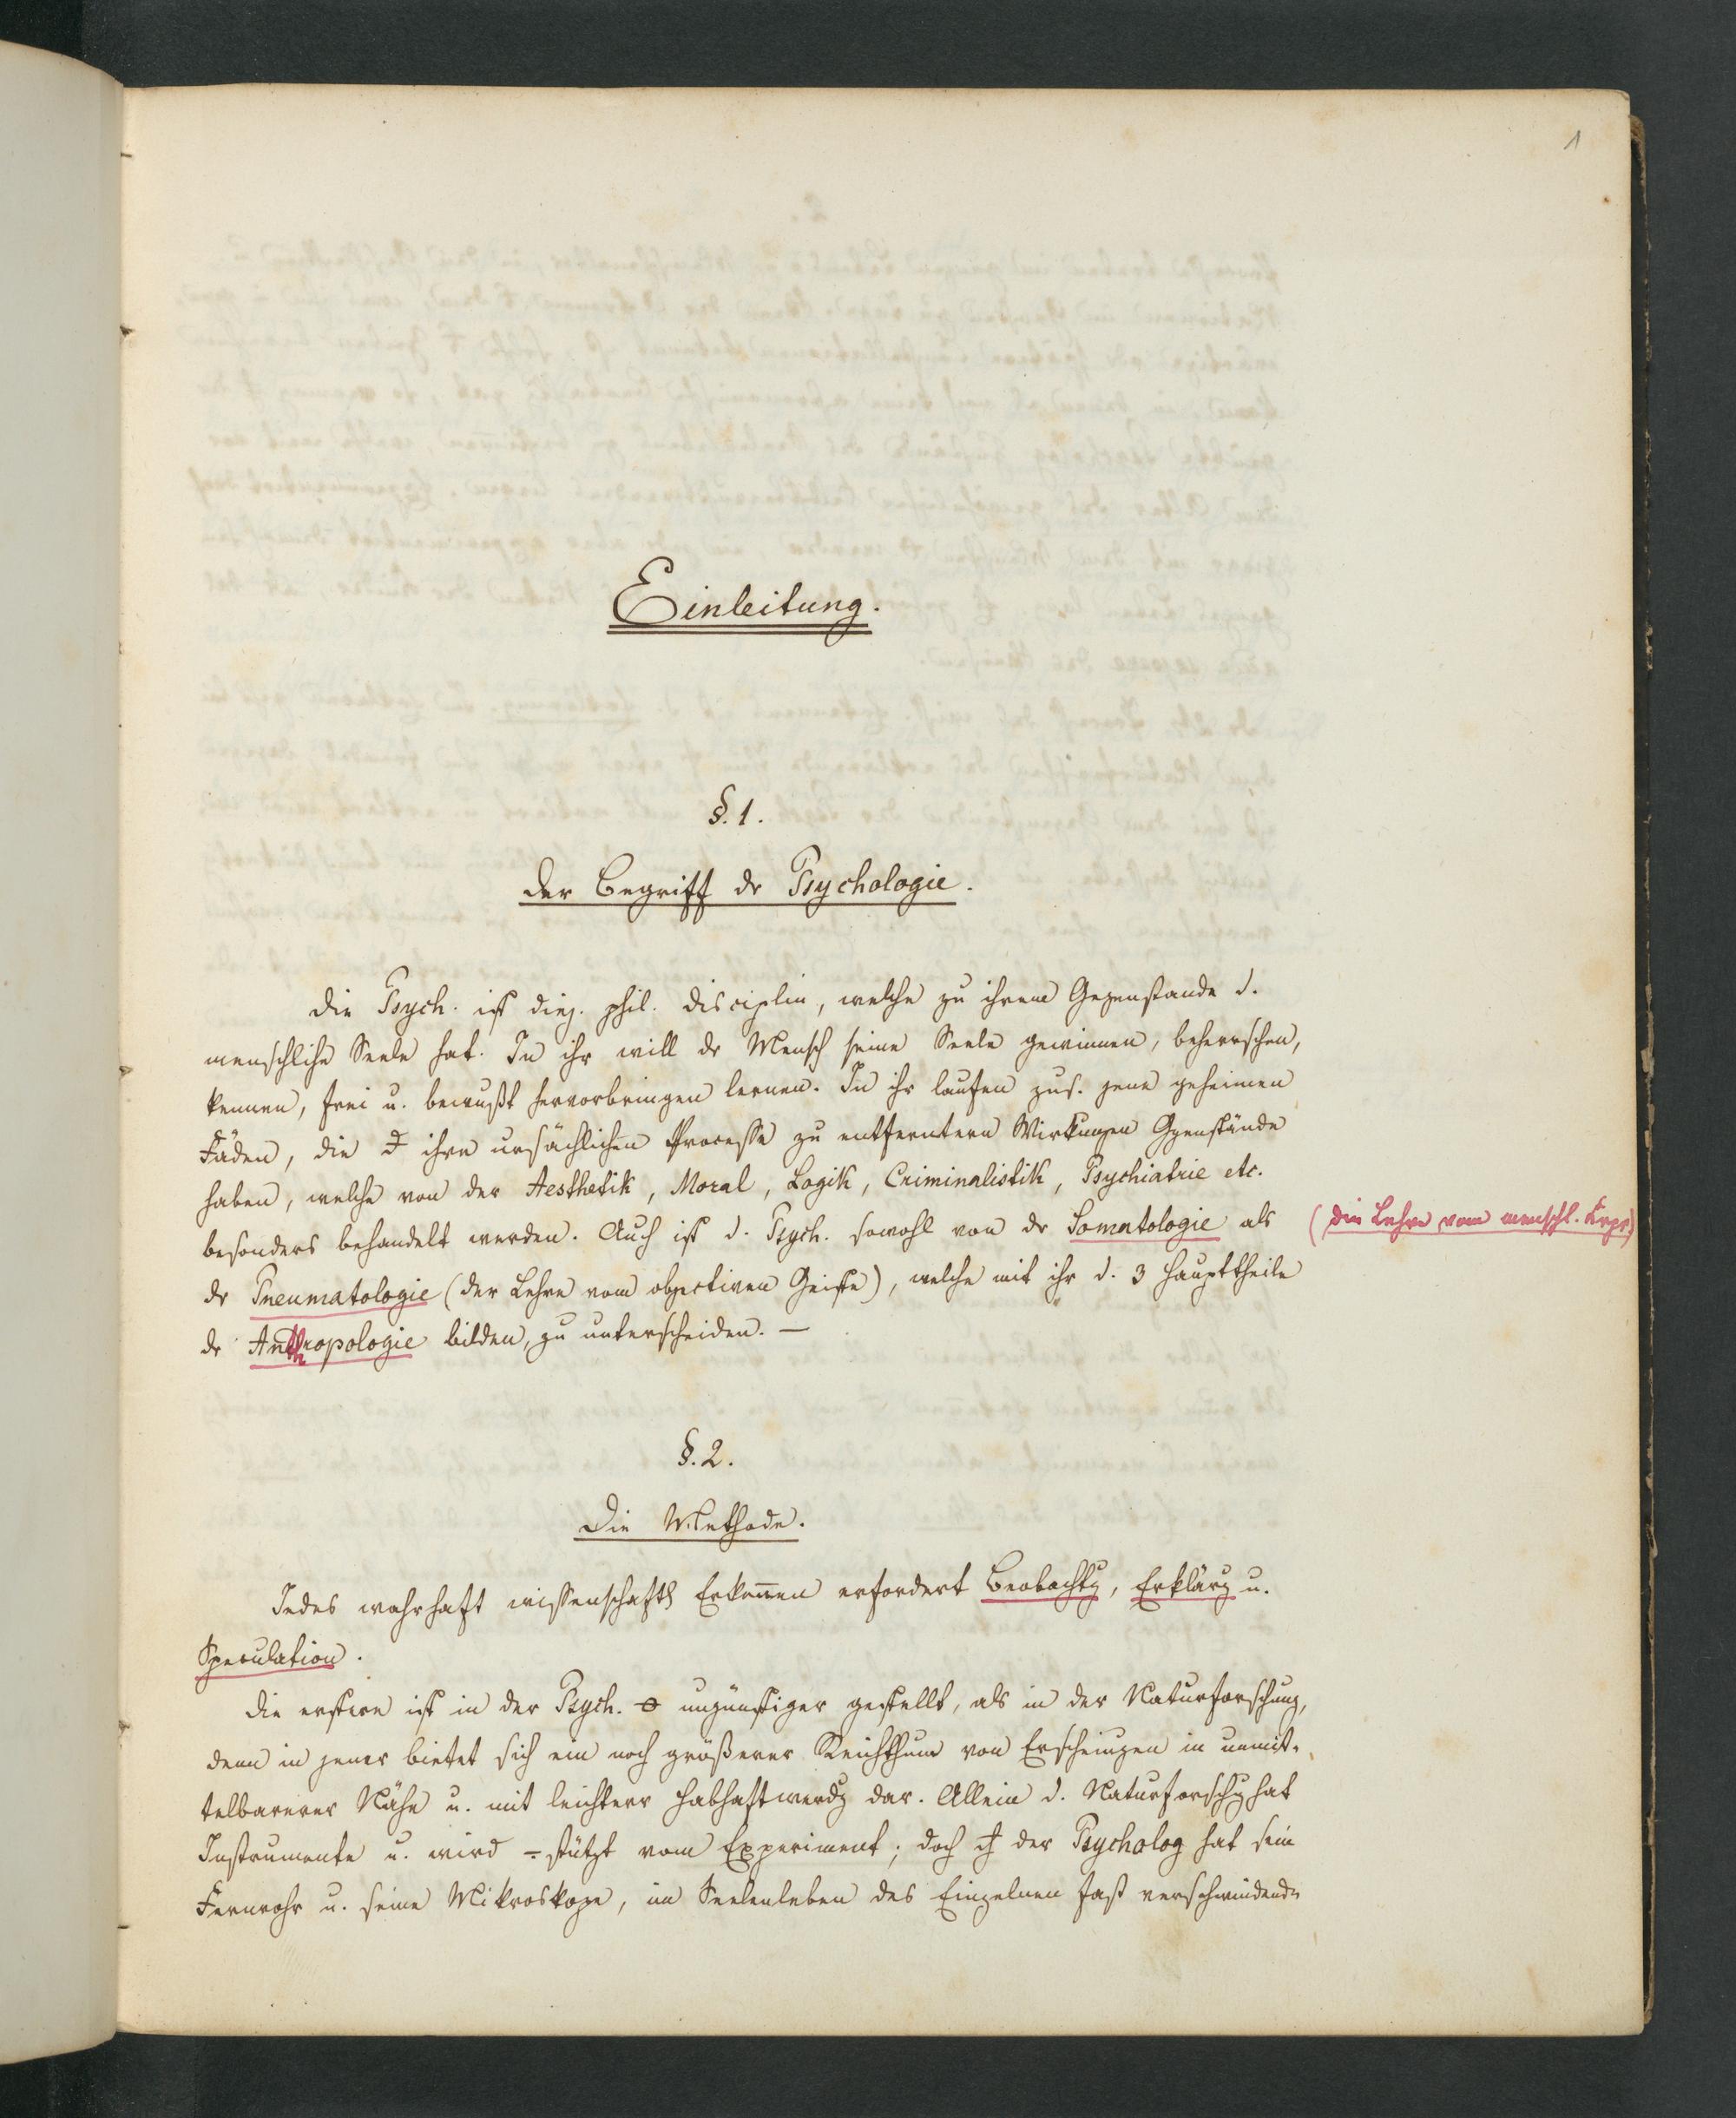 1
Einleitung.
§. 1.
Der Begriff dr Psychologie.
Die Psych. ist diej. phil. Disciplin, welche zu ihrem Gegenstande d.
menschliche Seele hat. In ihr will dr Mensch seine Seele gewinnen, beherrschen,
kennen, frei u. bewußt hervorbringen lernen. In ihr laufen zus. jene geheimen
Fäden, die ihre ursächlichen Processe zu entferntern Wirkungen Ggenstände
haben, welche von der Aesthetik, Moral, Logik, Criminalistik, Psychiatrie etc.
besonders behandelt werden. Auch ist d. Psych. sowohl von dr Somatologie als
(die Lehre vom menschl. Krpr)
dr Pneumatologie (der Lehre vom objectiven Geiste), welche mit ihr d. 3 Haupttheile
dr Anthropologie bilden, zu unterscheiden. —
§. 2.
Die Methode.
Jedes wahrhaft wissenschaftl Erkennen erfordert Beobachtg, Erklärg u.
Speculation.
Die erstere ist in der Psych. ungünstiger gestellt, als in der Naturforschung,
denn in jener bietet sich ein noch größerer Reichthum von Erscheingen in unmit-
telbarerer Nähe u. mit leichterr Habhaftwerdg dar. Allein d. Naturforschg hat
Instrumente u. wird stützt vom Experiment; doch der Psycholog hat sein
Fernrohr u. seine Mikroskope, im Seelenleben des Einzelnen fast verschwindende